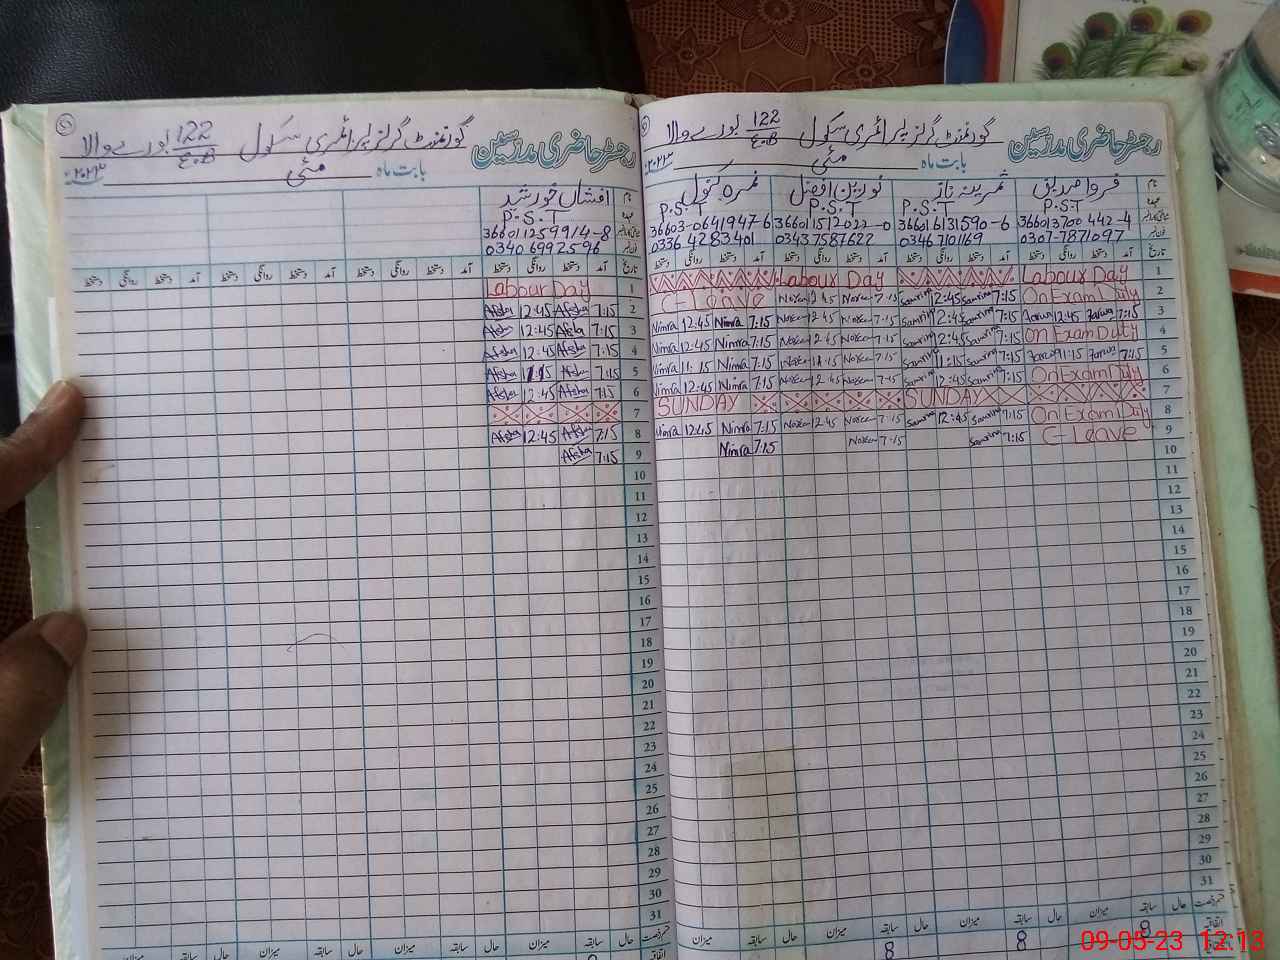 رجسٹر حاضری مدرسین گورنمنٹ گرلز پرائمری سکول 122/E.B بورے والا
بابت ماہ مئی ۲۰۲۳
نام فروا صدیق ثمرینہ ناز نورین افضل نمرہ کنول
عہدہ P.S.T P.S.T P.S.T P.S.T
366013700442-4 366016131590-6 366011512022-0 36603-0641947-6
0307-7871097 03467101169 03437587622 03364283401
تاریخ آمد دستخط روانگی دستخط آمد دستخط روانگی دستخط آمد دستخط روانگی دستخط آمد دستخط روانگی دستخط
1 Labour Day Labour Day
2 On Exam Duty 7:15 Samrina 12:45 Samrina 7:15 Noreen 12:45 Noreen C-Leave
3 7:15 Farwa 12:45 Farwa 7:15 Samrina 12:45 Samrina 7:15 Noreen 12:45 Noreen 7:15 Nimra 12:45 Nimra
4 On Exam Duty 7:15 Samrina 12:45 Samrina 7:15 Noreen 12:45 Noreen 7:15 Nimra 12:45 Nimra
5 7:15 Farwa 11:15 Farwa 7:15 Samrina 11:15 Samrina 7:15 Noreen 11:15 Noreen 7:15 Nimra 11:15 Nimra
6 On Exam Duty 7:15 Samrina 12:45 Samrina 7:15 Noreen 12:45 Noreen 7:15 Nimra 12:45 Nimra
7 SUNDAY SUNDAY
8 On Exam Duty 7:15 Samrina 12:45 Samrina 7:15 Noreen 12:45 Noreen 7:15 Nimra 12:45 Nimra
9 C-Leave 7:15 Samrina 7:15 Noreen 7:15 Nimra
10
11
12
13
14
15
16
17
18
19
20
21
22
23
24
25
26
27
28
29
30
31
حال سابقہ میزان حال سابقہ میزان حال سابقہ میزان حال سابقہ میزان
8 8 8
رجسٹر حاضری مدرسین گورنمنٹ گرلز پرائمری سکول 122/E.B بورے والا
بابت ماہ مئی ۲۰۲۳
نام افشاں خورشید
عہدہ P.S.T
366011259914-8
03406992596
تاریخ آمد دستخط روانگی دستخط آمد دستخط روانگی دستخط آمد دستخط روانگی دستخط آمد دستخط روانگی دستخط
1 Labour Day
2 7:15 Afsha 12:45 Afsha
3 7:15 Afsha 12:45 Afsha
4 7:15 Afsha 12:45 Afsha
5 7:15 Afsha 11:15 Afsha
6 7:15 Afsha 12:45 Afsha
7
8 7:15 Afsha 12:45 Afsha
9 7:15 Afsha
10
11
12
13
14
15
16
17
18
19
20
21
22
23
24
25
26
27
28
29
30
31
حال سابقہ میزان حال سابقہ میزان حال سابقہ میزان حال سابقہ میزان
09-05-23 12:13